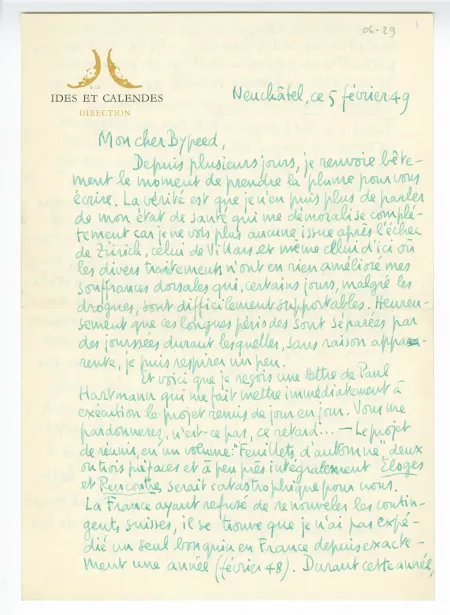 06-29
1
À LA
IDES ET CALENDES
DIRECTION
Neuchâtel, ce 5 février 49
Mon cher Bypeed,
Depuis plusieurs jours, je renvoie bête-
ment le moment de prendre la plume pour vous
écrire. La vérité est que je n'en puis plus de parler
de mon état de santé qui me démoralise complè-
tement car je ne vois plus aucune issue après l'échec
de Zürich, celui de Villars et même celui d'ici où
les divers traitements n'ont en rien amélioré mes
souffrances dorsales qui, certains jours, malgré les
drogues, sont difficilement supportables. Heureu-
sement que ces longues périodes sont séparées par
des journées durant lesquelles, sans raison appa-
rente, je puis respirer un peu.
Et voici que je reçois une lettre de Paul
Hartmann qui me fait mettre immédiatement à
exécution le projet remis de jour en jour. Vous me
pardonnerez, n'est-ce pas, ce retard... — Le projet
de réunir, en un volume: "Feuillets d'automne" deux
ou trois préfaces et à peu près intégralement Éloges
et Rencontres, serait catastrophique pour nous.
La France ayant refusé de renouveler les contin-
gents suisses, il se trouve que je n'ai pas expé-
dié un seul bouquin en France depuis exacte-
ment une année (février 48). Durant cette année,